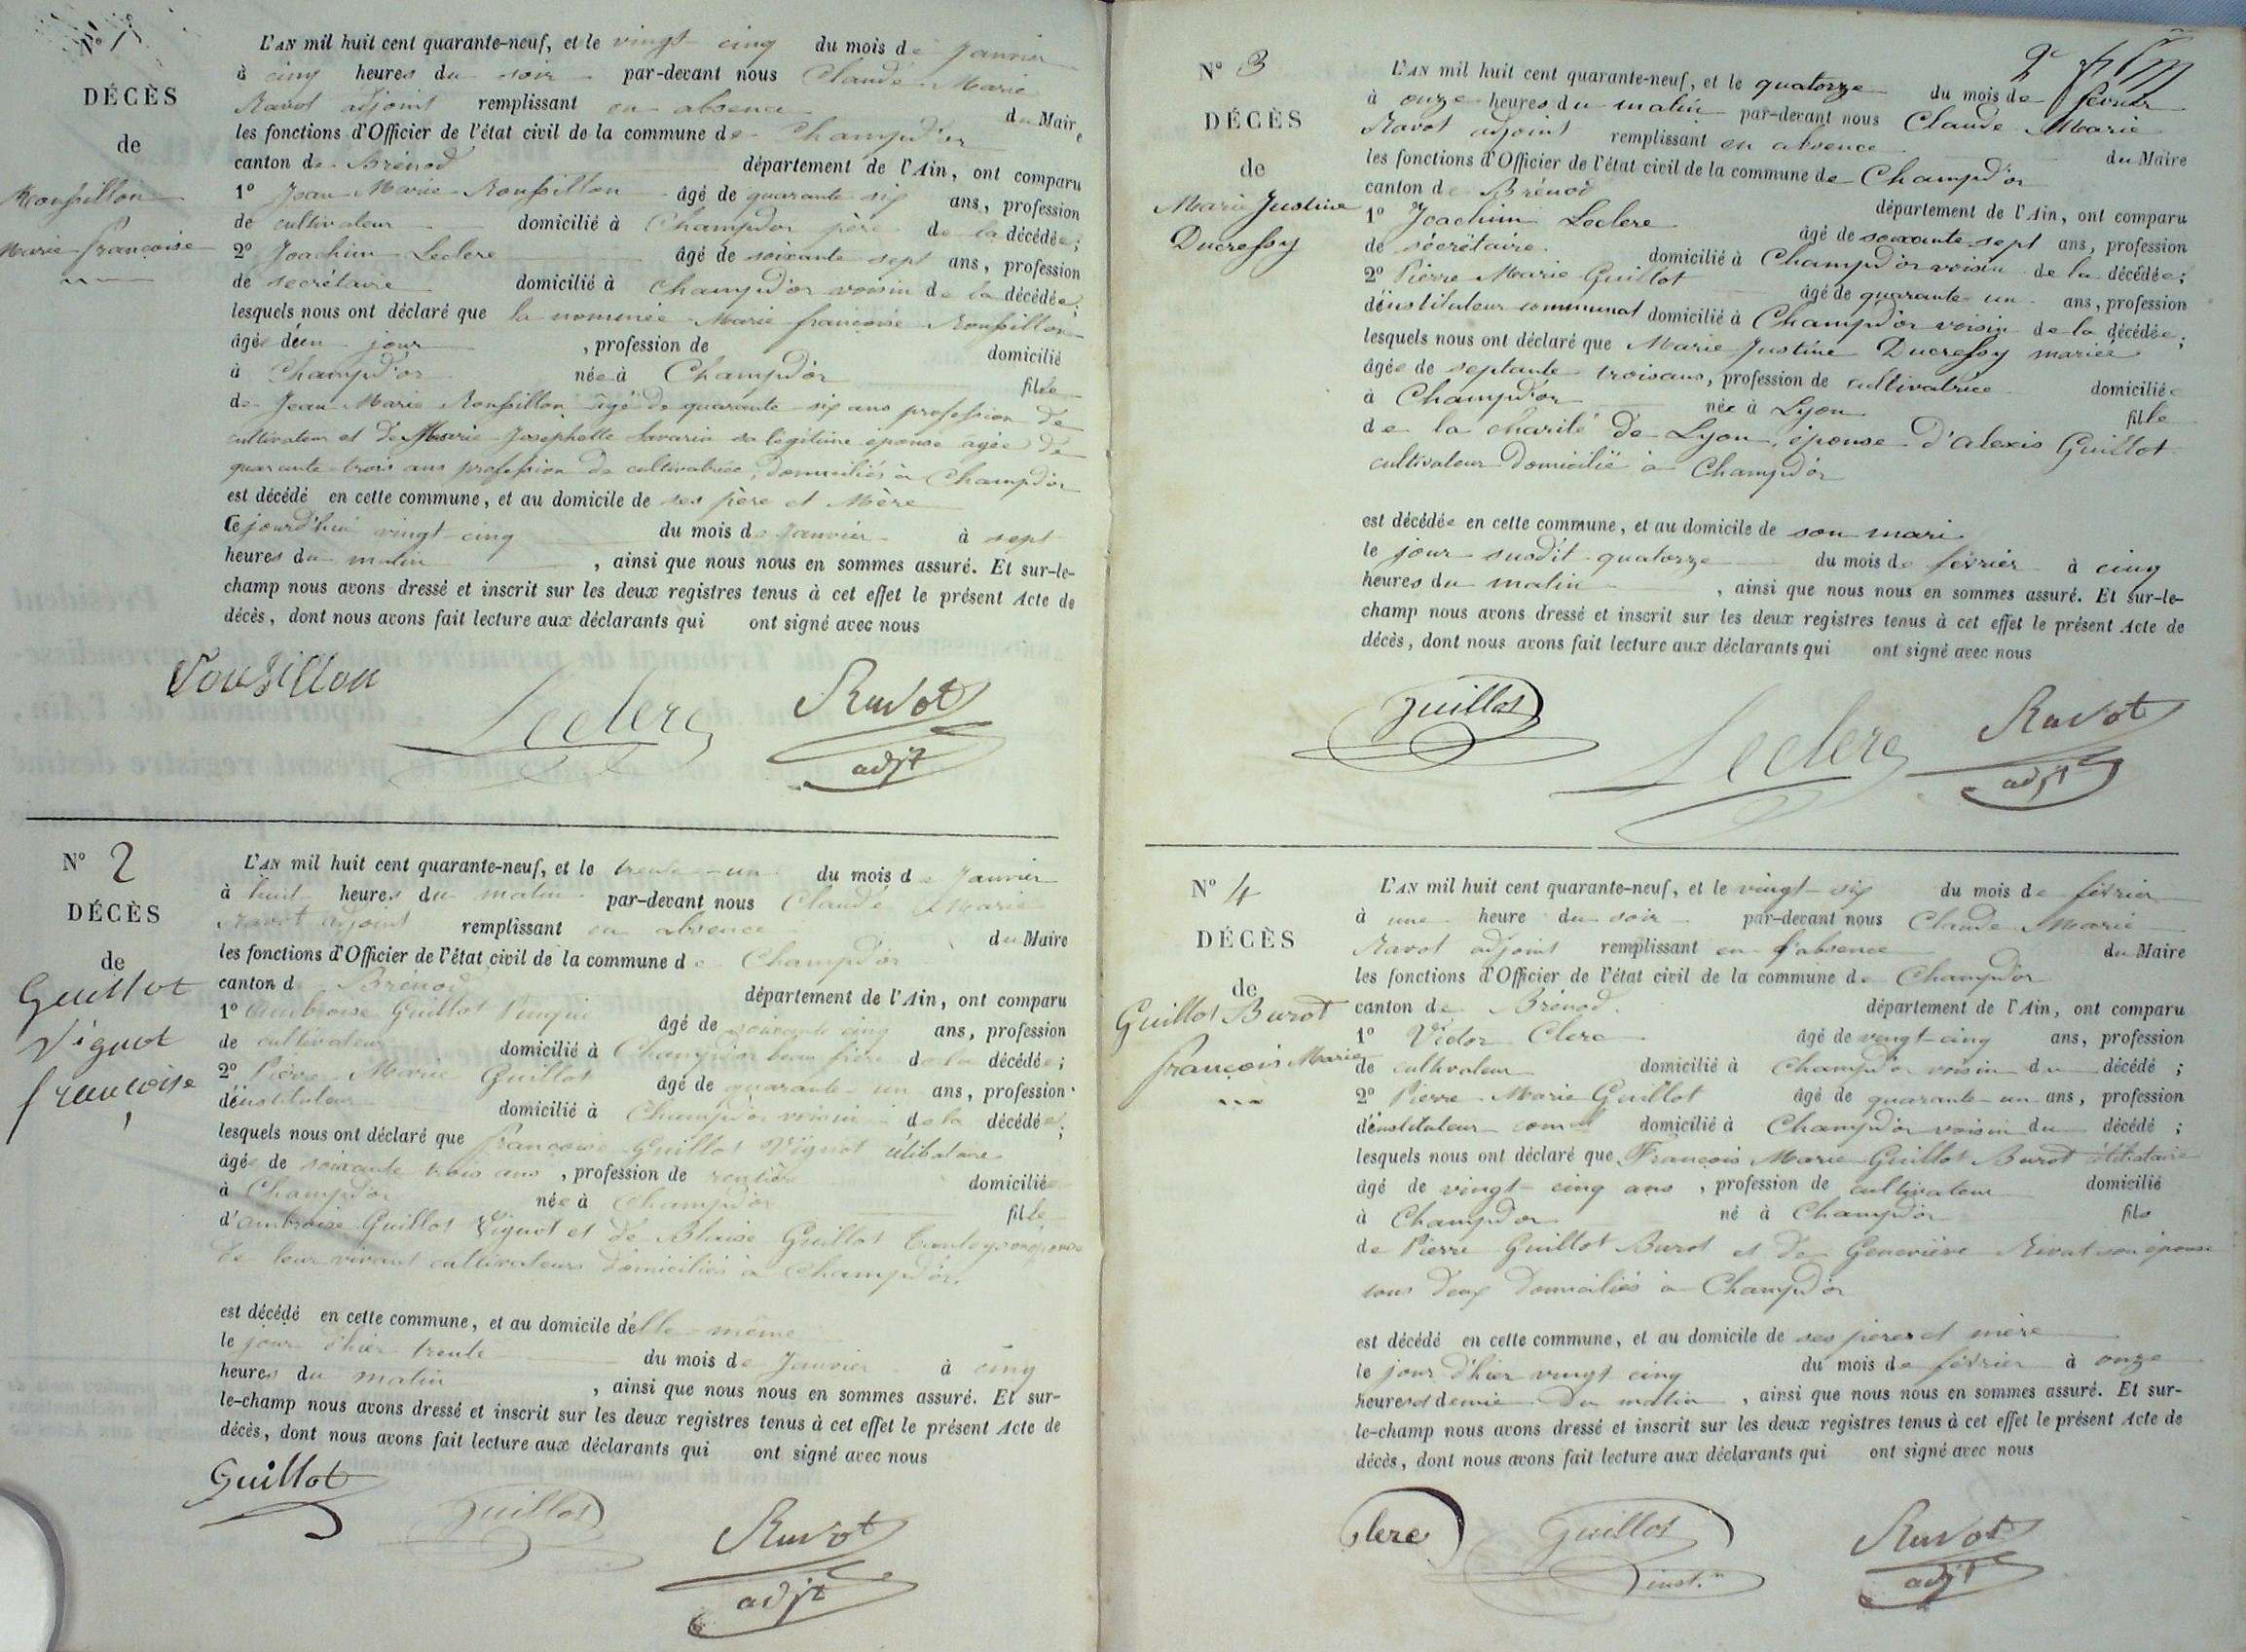 N° 1
DÉCÈS
de
Roussillon
Marie françoise
L'AN mil huit cent quarante-neuf, et le vingt-cinq du mois de Janvier
à cinq heures du soir par-devant nous Claude Marie
Ravot adjoint remplissant en absence du Maire
les fonctions d'Officier de l'état civil de la commune de Champd'or
canton de Brénod département de l'Ain, ont comparu
1° Jean Marie Roussillon âgé de quarante six ans, profession
de cultivateur domicilié à Champd'or père de la décédée;
2° Joachim Leclerc âgé de soixante sept ans, profession
de secrétaire domicilié à Champd'or voisin de la décédée;
lesquels nous ont déclaré que la nommée Marie françoise Roussillon
âgée d'un jour , profession de domicilié
à Champd'or née à Champd'or fille
de Jean Marie Roussillon âgé de quarante-six ans profession de
cultivateur et de Marie Josephette Savarin sa légitime épouse âgée de
quarante-trois ans profession de cultivatrice, domiciliés à Champd'or
est décédé en cette commune, et au domicile de ses père et Mère
Cejourd'hui vingt-cinq du mois de Janvier à sept
heures du matin , ainsi que nous nous en sommes assuré. Et sur-le-
champ nous avons dressé et inscrit sur les deux registres tenus à cet effet le présent Acte de
décès, dont nous avons fait lecture aux déclarants qui ont signé avec nous
Roussillon Leclerc Ravot
adjt
N° 2
DÉCÈS
de
Guillot
Vignot
françoise
L'AN mil huit cent quarante-neuf, et le trente-un du mois de Janvier
à huit heures du matin par-devant nous Claude Marie
Ravot adjoint remplissant en absence du Maire
les fonctions d'Officier de l'état civil de la commune de Champd'or
canton d Brénod département de l'Ain, ont comparu
1° Ambroise Guillot âgé de soixante cinq ans, profession
de cultivateur domicilié à Champd'or beau frère de la décédée;
2° Pierre Marie Guillot âgé de quarante-un ans, profession
d'instituteur domicilié à Champd'or voisin de la décédée;
lesquels nous ont déclaré que françoise Guillot Vignot célibataire
âgée de soixante trois ans , profession de rentière domiciliée
à Champd'or née à Champd'or fille
d'ambroise Guillot Vignot et de Blaise Guillot son épouse
de leur vivant cultivateurs domiciliés à Champd'or.
est décédé en cette commune, et au domicile d'elle-même
le jour d'hier trente du mois de Janvier à cinq
heures du matin , ainsi que nous nous en sommes assuré. Et sur-
le-champ nous avons dressé et inscrit sur les deux registres tenus à cet effet le présent Acte de
décès, dont nous avons fait lecture aux déclarants qui ont signé avec nous
Guillot Guillot Ravot
adjt
N° 3
DÉCÈS
de
Marie Justine
Ducressy
L'AN mil huit cent quarante-neuf, et le quatorze du mois de février
à onze heures du matin par-devant nous Claude Marie
Ravot adjoint remplissant en absence du Maire
les fonctions d'Officier de l'état civil de la commune de Champd'or
canton de Brénod département de l'Ain, ont comparu
1° Joachim Leclerc âgé de soixante-sept ans, profession
de sécrétaire domicilié à Champd'or voisin de la décédée;
2° Pierre Marie Guillot âgé de quarante-un ans, profession
d'instituteur communal domicilié à Champd'or voisin de la décédée;
lesquels nous ont déclaré que Marie Justine Ducressy mariée
âgée de septante troisans, profession de cultivatrice domiciliée
à Champd'or née à Lyon fille
de la charité de Lyon, épouse d'alexis Guillot
cultivateur domicilié à Champd'or
est décédée en cette commune, et au domicile de son mari
le jour susdit quatorze du mois de février à cinq
heures du matin , ainsi que nous nous en sommes assuré. Et sur-le-
champ nous avons dressé et inscrit sur les deux registres tenus à cet effet le présent Acte de
décès, dont nous avons fait lecture aux déclarants qui ont signé avec nous
Guillot Leclerc Ravot
adjt
N° 4
DÉCÈS
de
Guillot Burot
françois Marie
L'AN mil huit cent quarante-neuf, et le vingt-six du mois de février
à une heure du soir par-devant nous Claude Marie
Ravot adjoint remplissant en l'absence du Maire
les fonctions d'Officier de l'état civil de la commune de Champd'or
canton de Brénod département de l'Ain, ont comparu
1° Victor Clerc âgé de vingt-cinq ans, profession
de cultivateur domicilié à Champd'or voisin du décédé ;
2° Pierre Marie Guillot âgé de quarante-un ans, profession
d'instituteur domicilié à Champd'or voisin du décédé ;
lesquels nous ont déclaré que François Marie Guillot Burot célibataire
âgé de vingt-cinq ans , profession de cultivateur domicilié
à Champd'or né à Champd'or fils
de Pierre Guillot Burot et de Geneviève Rivat son épouse
tous deux domiciliés à Champd'or
est décédé en cette commune, et au domicile de ses pères et mère
le jour d'hier vingt cinq du mois de février à onze
heures et demie du matin , ainsi que nous nous en sommes assuré. Et sur-
le-champ nous avons dressé et inscrit sur les deux registres tenus à cet effet le présent Acte de
décès, dont nous avons fait lecture aux déclarants qui ont signé avec nous
Clerc Guillot Ravot
inst.r adjt